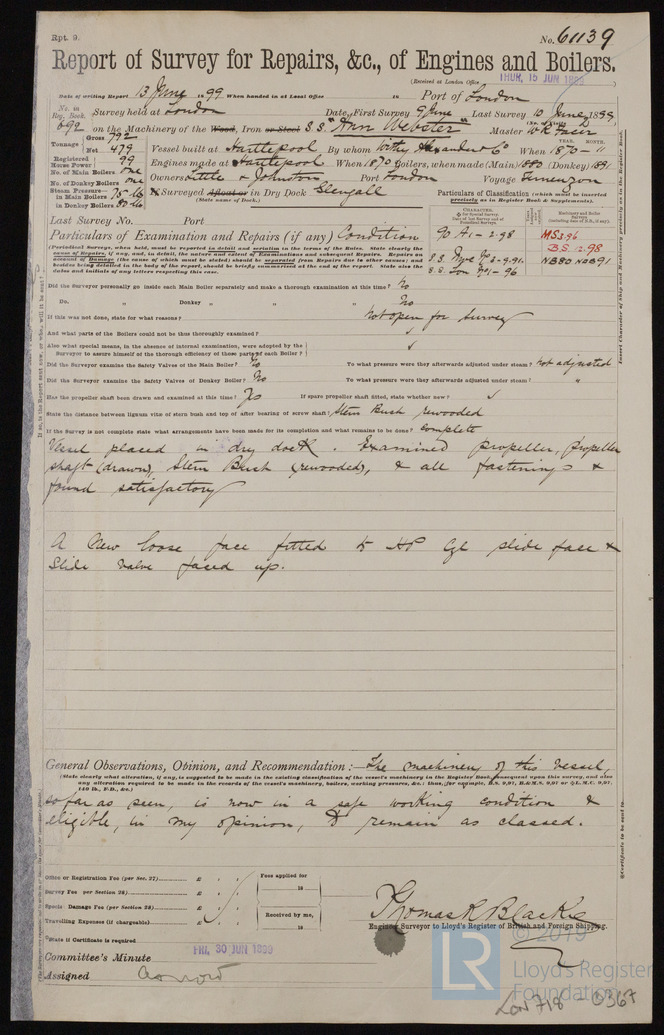 Rpt. 9.
No. 61139
Report of Survey for Repairs, &c., of Engines and Boilers.
(Received at London Office THUR, 15 JUN 1899)
Date of writing Report 13 June 1899 When handed in at Local Office 18 Port of London
No. in Reg. Book. Survey held at London Date, First Survey 9 June Last Survey 10 June 1899
692 on the Machinery of the Wood, Iron or Steel S.S. "Ann Webster" Master
Tonnage Gross 792 Net 479 Vessel built at Hartlepool By whom When 1870 - 11
Registered Horse Power 99 Engines made at Hartlepool When 1870 Boilers, when made (Main) 1880 (Donkey) 1891
No. of Main Boilers one Owners Little & Johnston Port London Voyage
No. of Donkey Boilers one
Steam Pressure in Main Boilers 75 lb in Donkey Boilers
If Surveyed Afloat or in Dry Dock Glengall
(State name of Dock.)
Particulars of Classification (which must be inserted precisely as in Register Book & Supplements).
Last Survey No. Port
90 A1 - 2.98
MS 3.96
B.S. 12.98
NB80 NDB91
S.S. No 3 - 9.91
S.S. Lon No 1 - 96
Particulars of Examination and Repairs (if any) Condition
(Periodical Surveys, when held, must be reported in detail and seriatim in the terms of the Rules. State clearly the
Did the Surveyor personally go inside each Main Boiler separately and make a thorough examination at this time? No
Do. " Donkey " " " No
If this was not done, state for what reasons? Not open for Survey
And what parts of the Boilers could not be thus thoroughly examined?
Also what special means, in the absence of internal examination, were adopted by the Surveyor to assure himself of the thorough efficiency of those parts of each Boiler?
Did the Surveyor examine the Safety Valves of the Main Boiler? No To what pressure were they afterwards adjusted under steam? not adjusted
Did the Surveyor examine the Safety Valves of Donkey Boiler? No To what pressure were they afterwards adjusted under steam? "
Has the propeller shaft been drawn and examined at this time? Yes If spare propeller shaft fitted, state whether new?
State the distance between lignum vitæ of stern bush and top of after bearing of screw shaft: Stern Bush rewooded
If the Survey is not complete state what arrangements have been made for its completion and what remains to be done? Complete
Vessel placed in dry dock. Examined propeller, propeller
shaft (drawn), Stern Bush (rewooded), & all fastenings &
found satisfactory
A New loose face fitted to HP Cyl slide face &
Slide valve faced up.
General Observations, Opinion, and Recommendation:— The machinery of this vessel,
(State clearly what alteration, if any, is suggested to be made in the existing classification of the vessel's machinery in the Register Book, consequent upon this survey, and also
any alteration required to be made in the records of the vessel's machinery, boilers, working pressures, &c.; thus, for example, B.S. 9,91, B.&M.S. 9,91 or L.M.C. 9,91,
140 lb., F.D., &c.)
so far as seen, is now in a safe working condition &
eligible, in my opinion, to remain as classed.
Office or Registration Fee (per Sec. 27) £
Survey Fee per Section 28) £
Special Damage Fee (per Section 28) £
Travelling Expenses (if chargeable) £
Fees applied for 18
Received by me, 18
Thomas R Blackie
Engineer Surveyor to Lloyd's Register of British and Foreign Shipping.
*State if Certificate is required
Committee's Minute FRI. 30 JUN 1899
Assigned As now
LR
© 2019
Lloyd's Register
Foundation
LON 718 - 0367